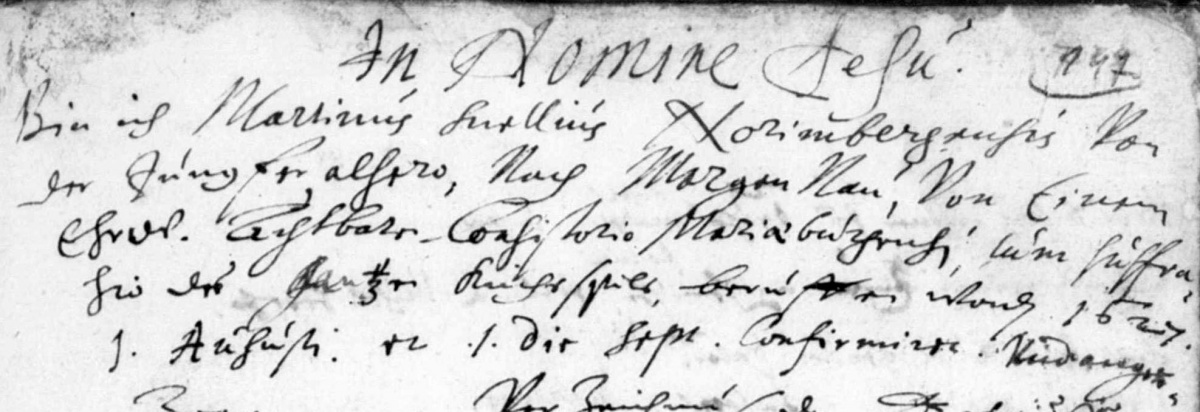 In Nomine Jesu. 147
Bin ich Martinus Snellius Norimbergensis Von
der Jungfer alhero, Nach Morgen Nau, Von Einem
Ehrw. Achtbarn Consistorio Mariæburgensi, zum suffra-
gio des gantzen Kirchspils, beruffen word. 1627.
1. Augusti. et 1. Die Sept. Confirmiret. Und